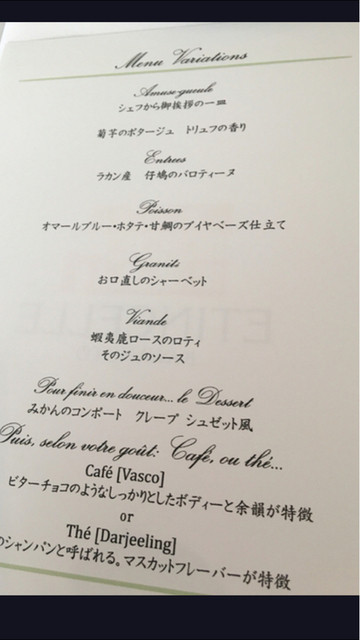 Menu Variations
Amuse-gueule
シェフから御挨拶の一皿
菊芋のポタージュ トリュフの香り
Entrees
ラカン産 仔鳩のバロティーヌ
Poisson
オマールブルー・ホタテ・甘鯛のブイヤベーズ仕立て
Granité
お口直しのシャーベット
Viande
蝦夷鹿ロースのロティ
そのジュのソース
Pour finir en douceur... le Dessert
みかんのコンポート クレープ シュゼット風
Puis, selon votre goût: Café, ou thé...
Café [Vasco]
ビターチョコのようなしっかりとしたボディーと余韻が特徴
or
Thé [Darjeeling]
のシャンパンと呼ばれる。マスカットフレーバーが特徴